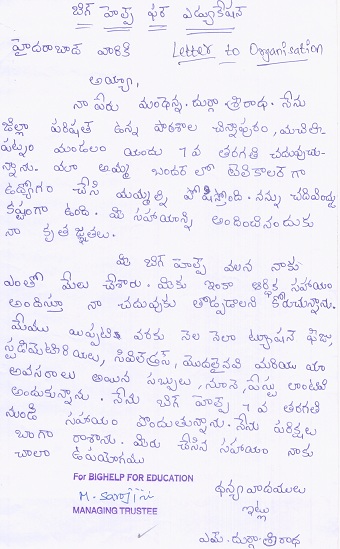 బిగ్ హెల్ప్ ఫర్ ఎడ్యుకేషన్
హైదరాబాద్ వారికి Letter to Organisation
అయ్యా,
నా పేరు మంథెన్న. దుర్గా శ్రీరాధ. నేను
జిల్లా పరిషత్ ఉన్న పాఠశాల చిన్నాపురం, మచిలీ
పట్నం మండలం యందు 7వ తరగతి చదువుచు
న్నాను. మా అమ్మ బందర్ లో టైలర్ గా
ఉద్యోగం చేసి మమ్మల్ని పోషిస్తోంది. నన్ను చదివించు
కష్టంగా ఉంది. మీ సహాయాన్ని అందించినందుకు
నా కృతజ్ఞతలు.
మీ బిగ్ హెల్ప్ వలన నాకు
ఎంతో మేలు చేశారు. మీకు ఇంకా ఆర్థిక సహాయం
అందిస్తూ నా చదువుకు తోడ్పడాలని కోరుచున్నాను.
మేము యిప్పటి వరకు నెల నెలా ట్యూషన్ ఫీజు,
స్టడీమెటీరియలు, మొదలైనవి మరియు మా
అవసరాలు అయిన సబ్బులు, నూనె, పేస్టు లాంటివి
అందుకున్నాను. నేను బిగ్ హెల్ప్ 7వ తరగతి
నుండి సహాయం పొందుతున్నాను. నేను పరీక్షలు
బాగా రాశాను. మీరు చేసిన సహాయం నాకు
చాలా ఉపయోగము
For BIGHELP FOR EDUCATION
M. Sarojini
MANAGING TRUSTEE
ధన్యవాదములు
ఇట్లు
ఎమ్. దుర్గా శ్రీరాధ